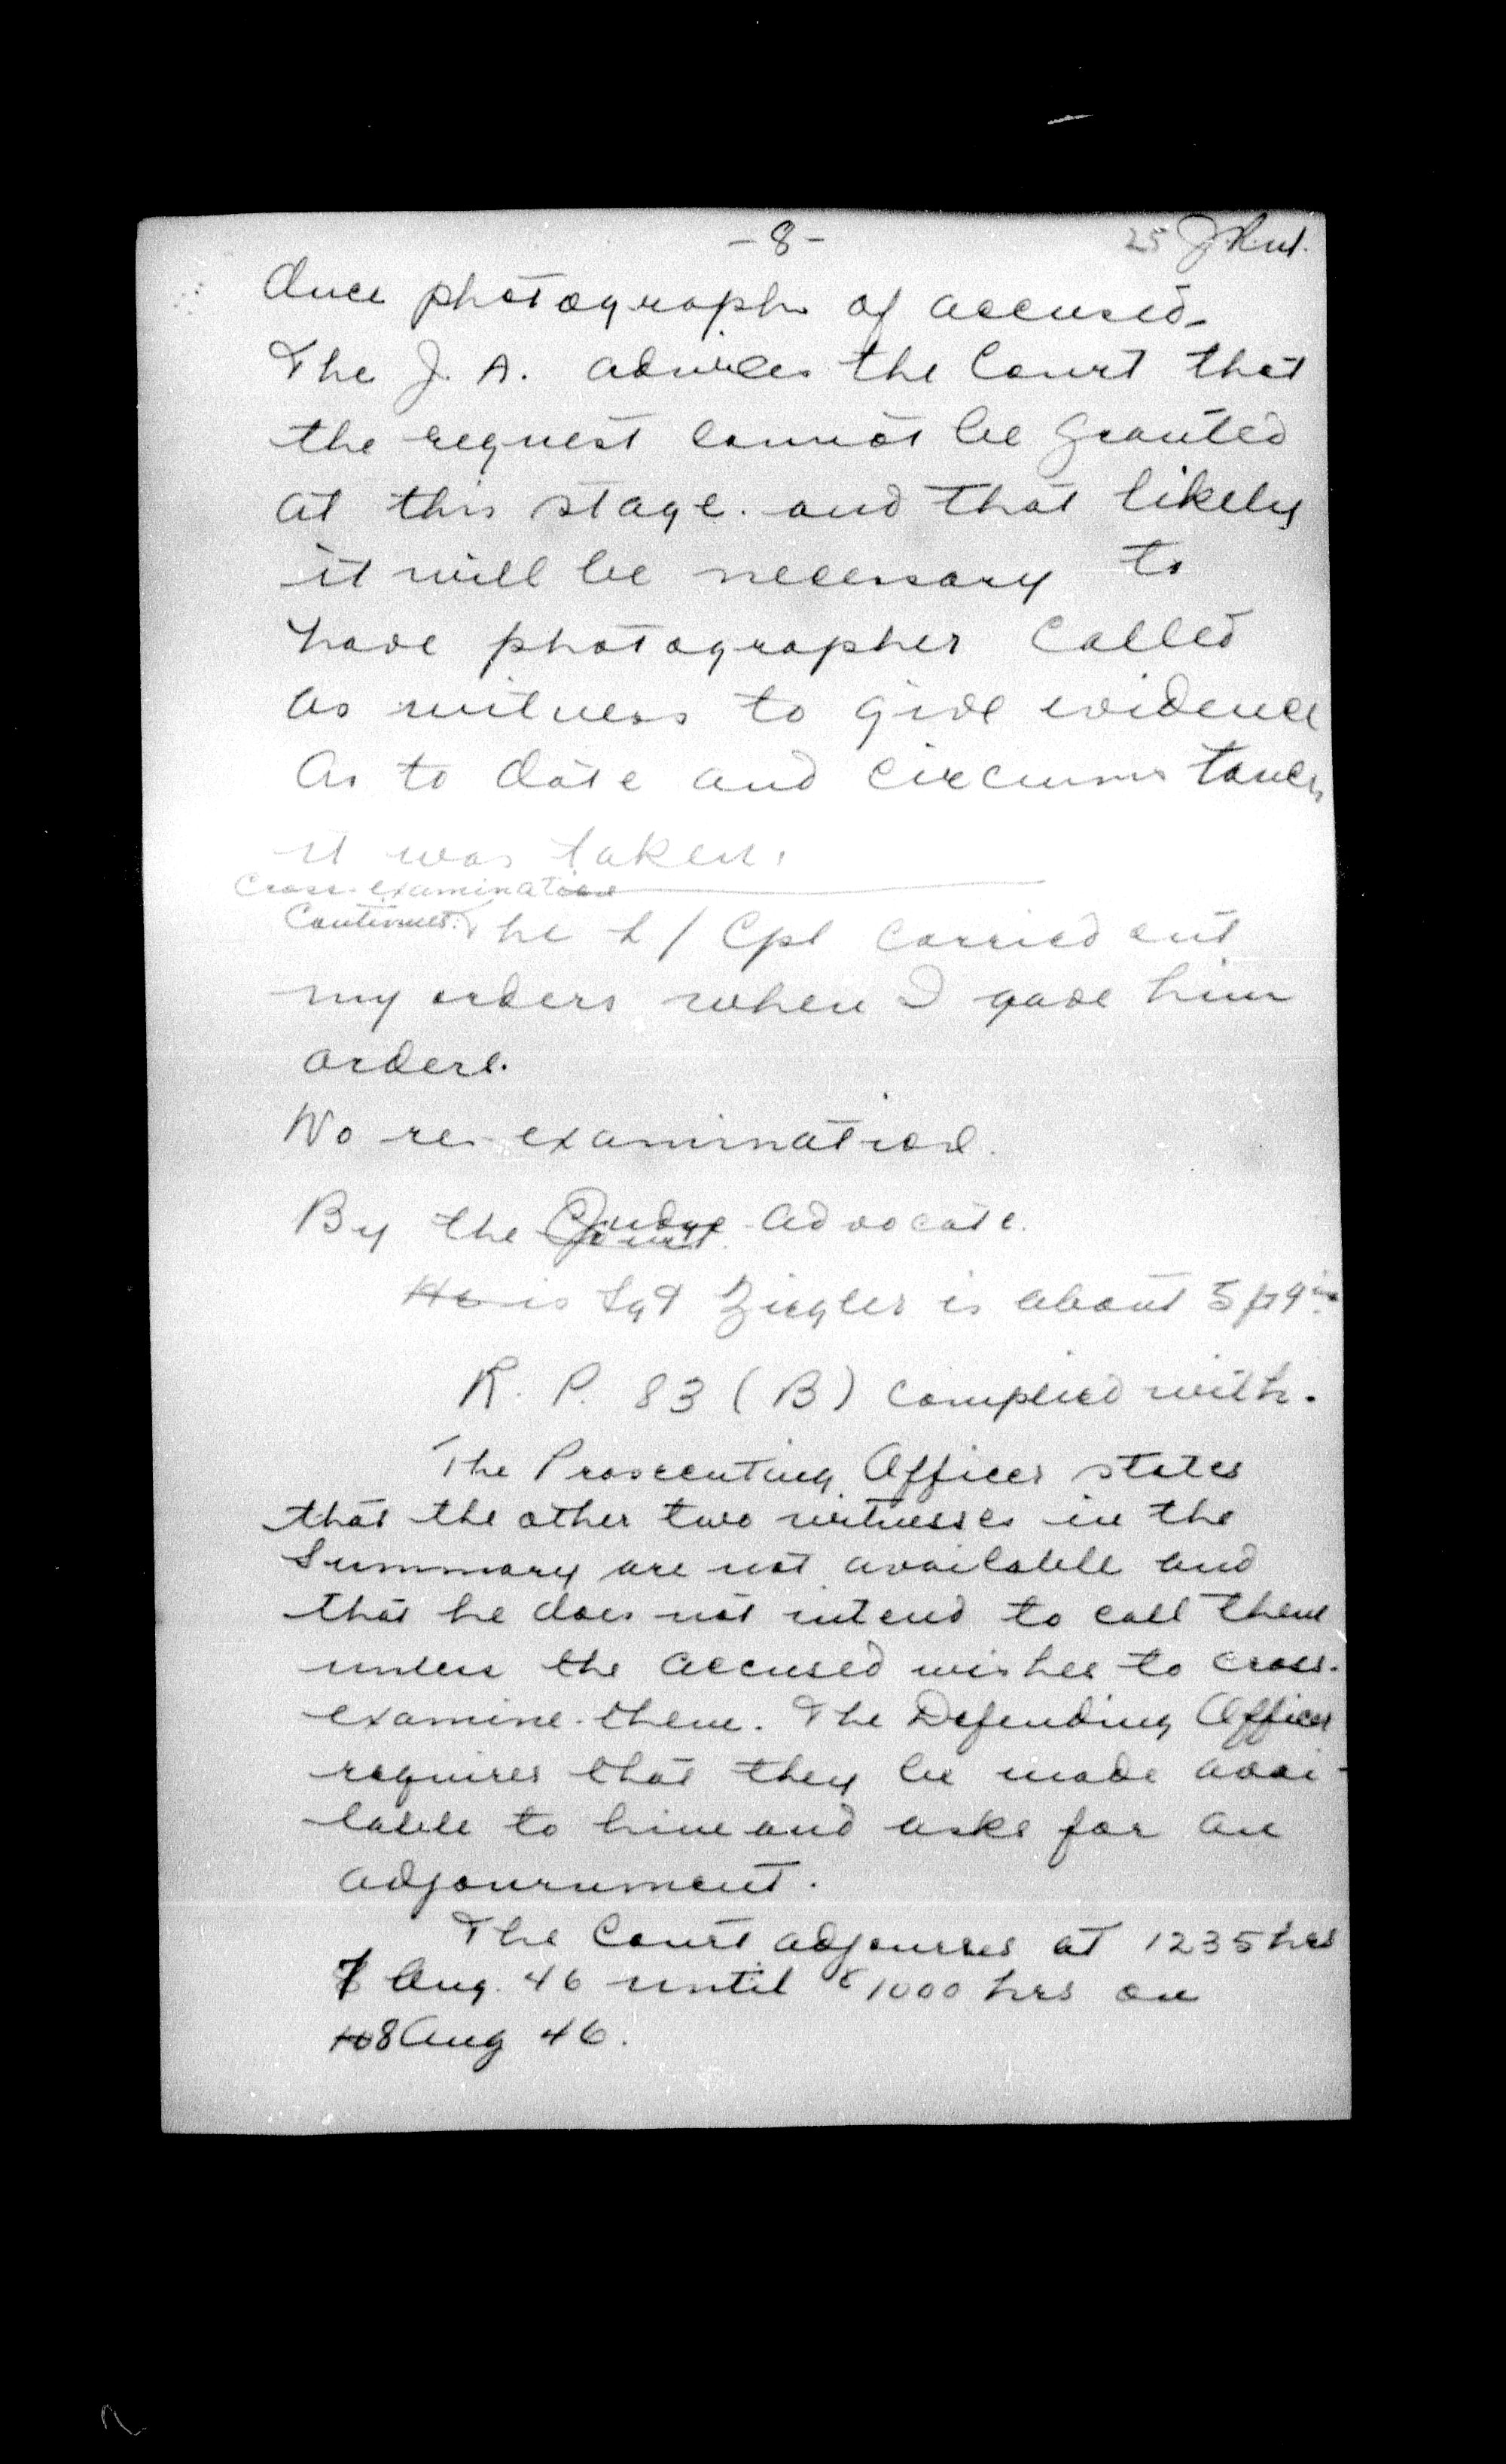 -8-
25
duce photographs of accused.
The J. A. advises the Court that
the request cannot be granted
at this stage. and that likely
it will be necessary to
have photographer called
as witness to give evidence
as to date and circumstances
it was taken.
Cross-examination
Continued. The L/Cpl carried out
my orders when I gave him
orders.
No re-examination.
By the Court Judge Advocate.
He is Sgt Ziegler is about 5 ft 9 in
R. P. 83 (B) complied with.
The Prosecuting Officer states
that the other two witnesses in the
Summary are not available and
that he does not intend to call them
unless the accused wishes to cross-
examine them. The Defending Officer
requires that they be made avai-
lable to him and asks for an
adjournment.
The Court adjourns at 1235 hrs
7 Aug. 46 until 1000 hrs on
8 Aug 46.